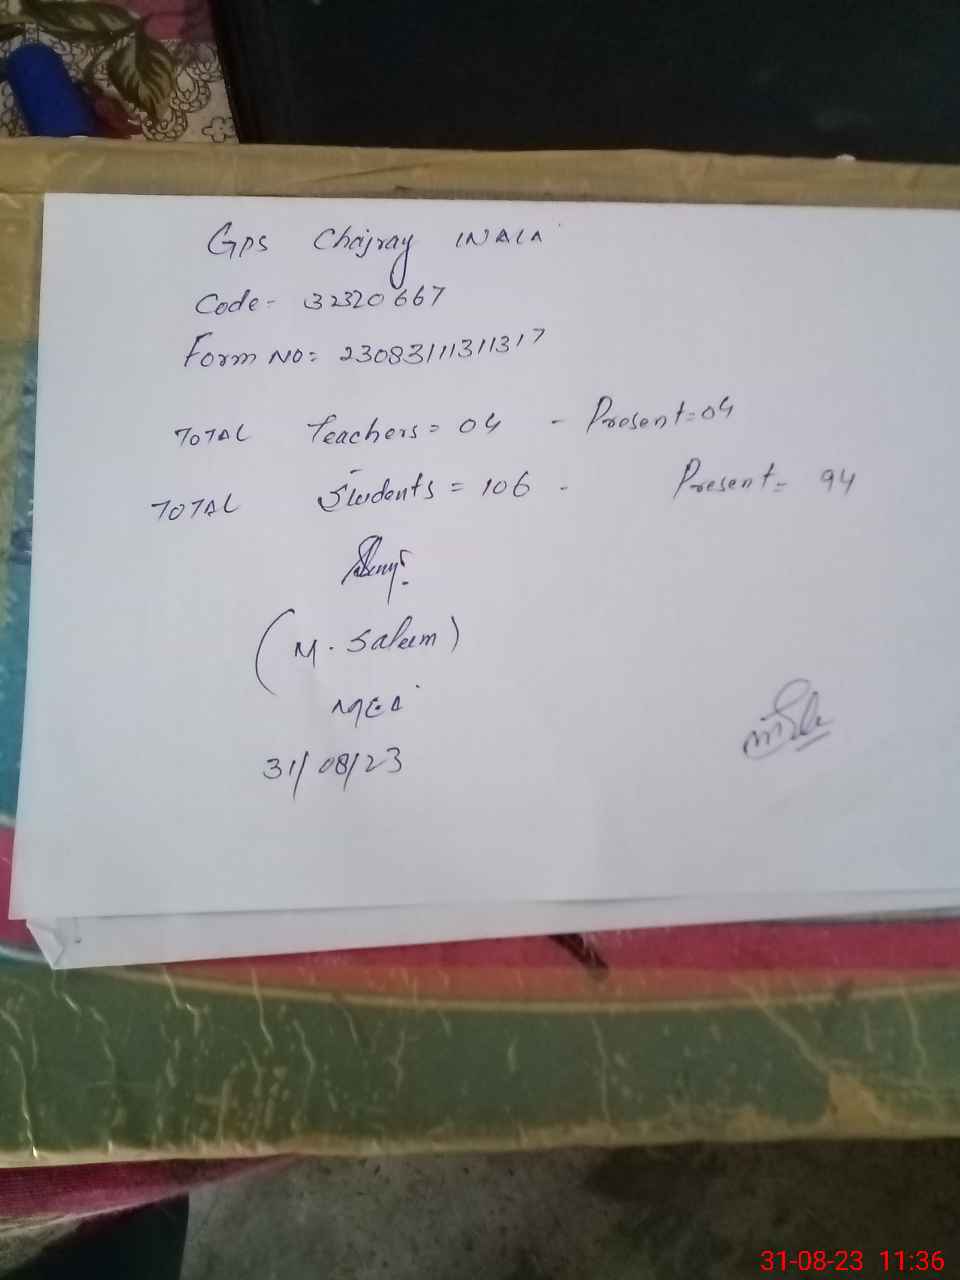 GPS Chajray WALA
Code- 32320667
Form No: 23083111311317
TOTAL Teachers = 04 - Present = 04
TOTAL Students = 106 - Present = 94
(M. Saleem)
MEA
31/08/23
31-08-23 11:36